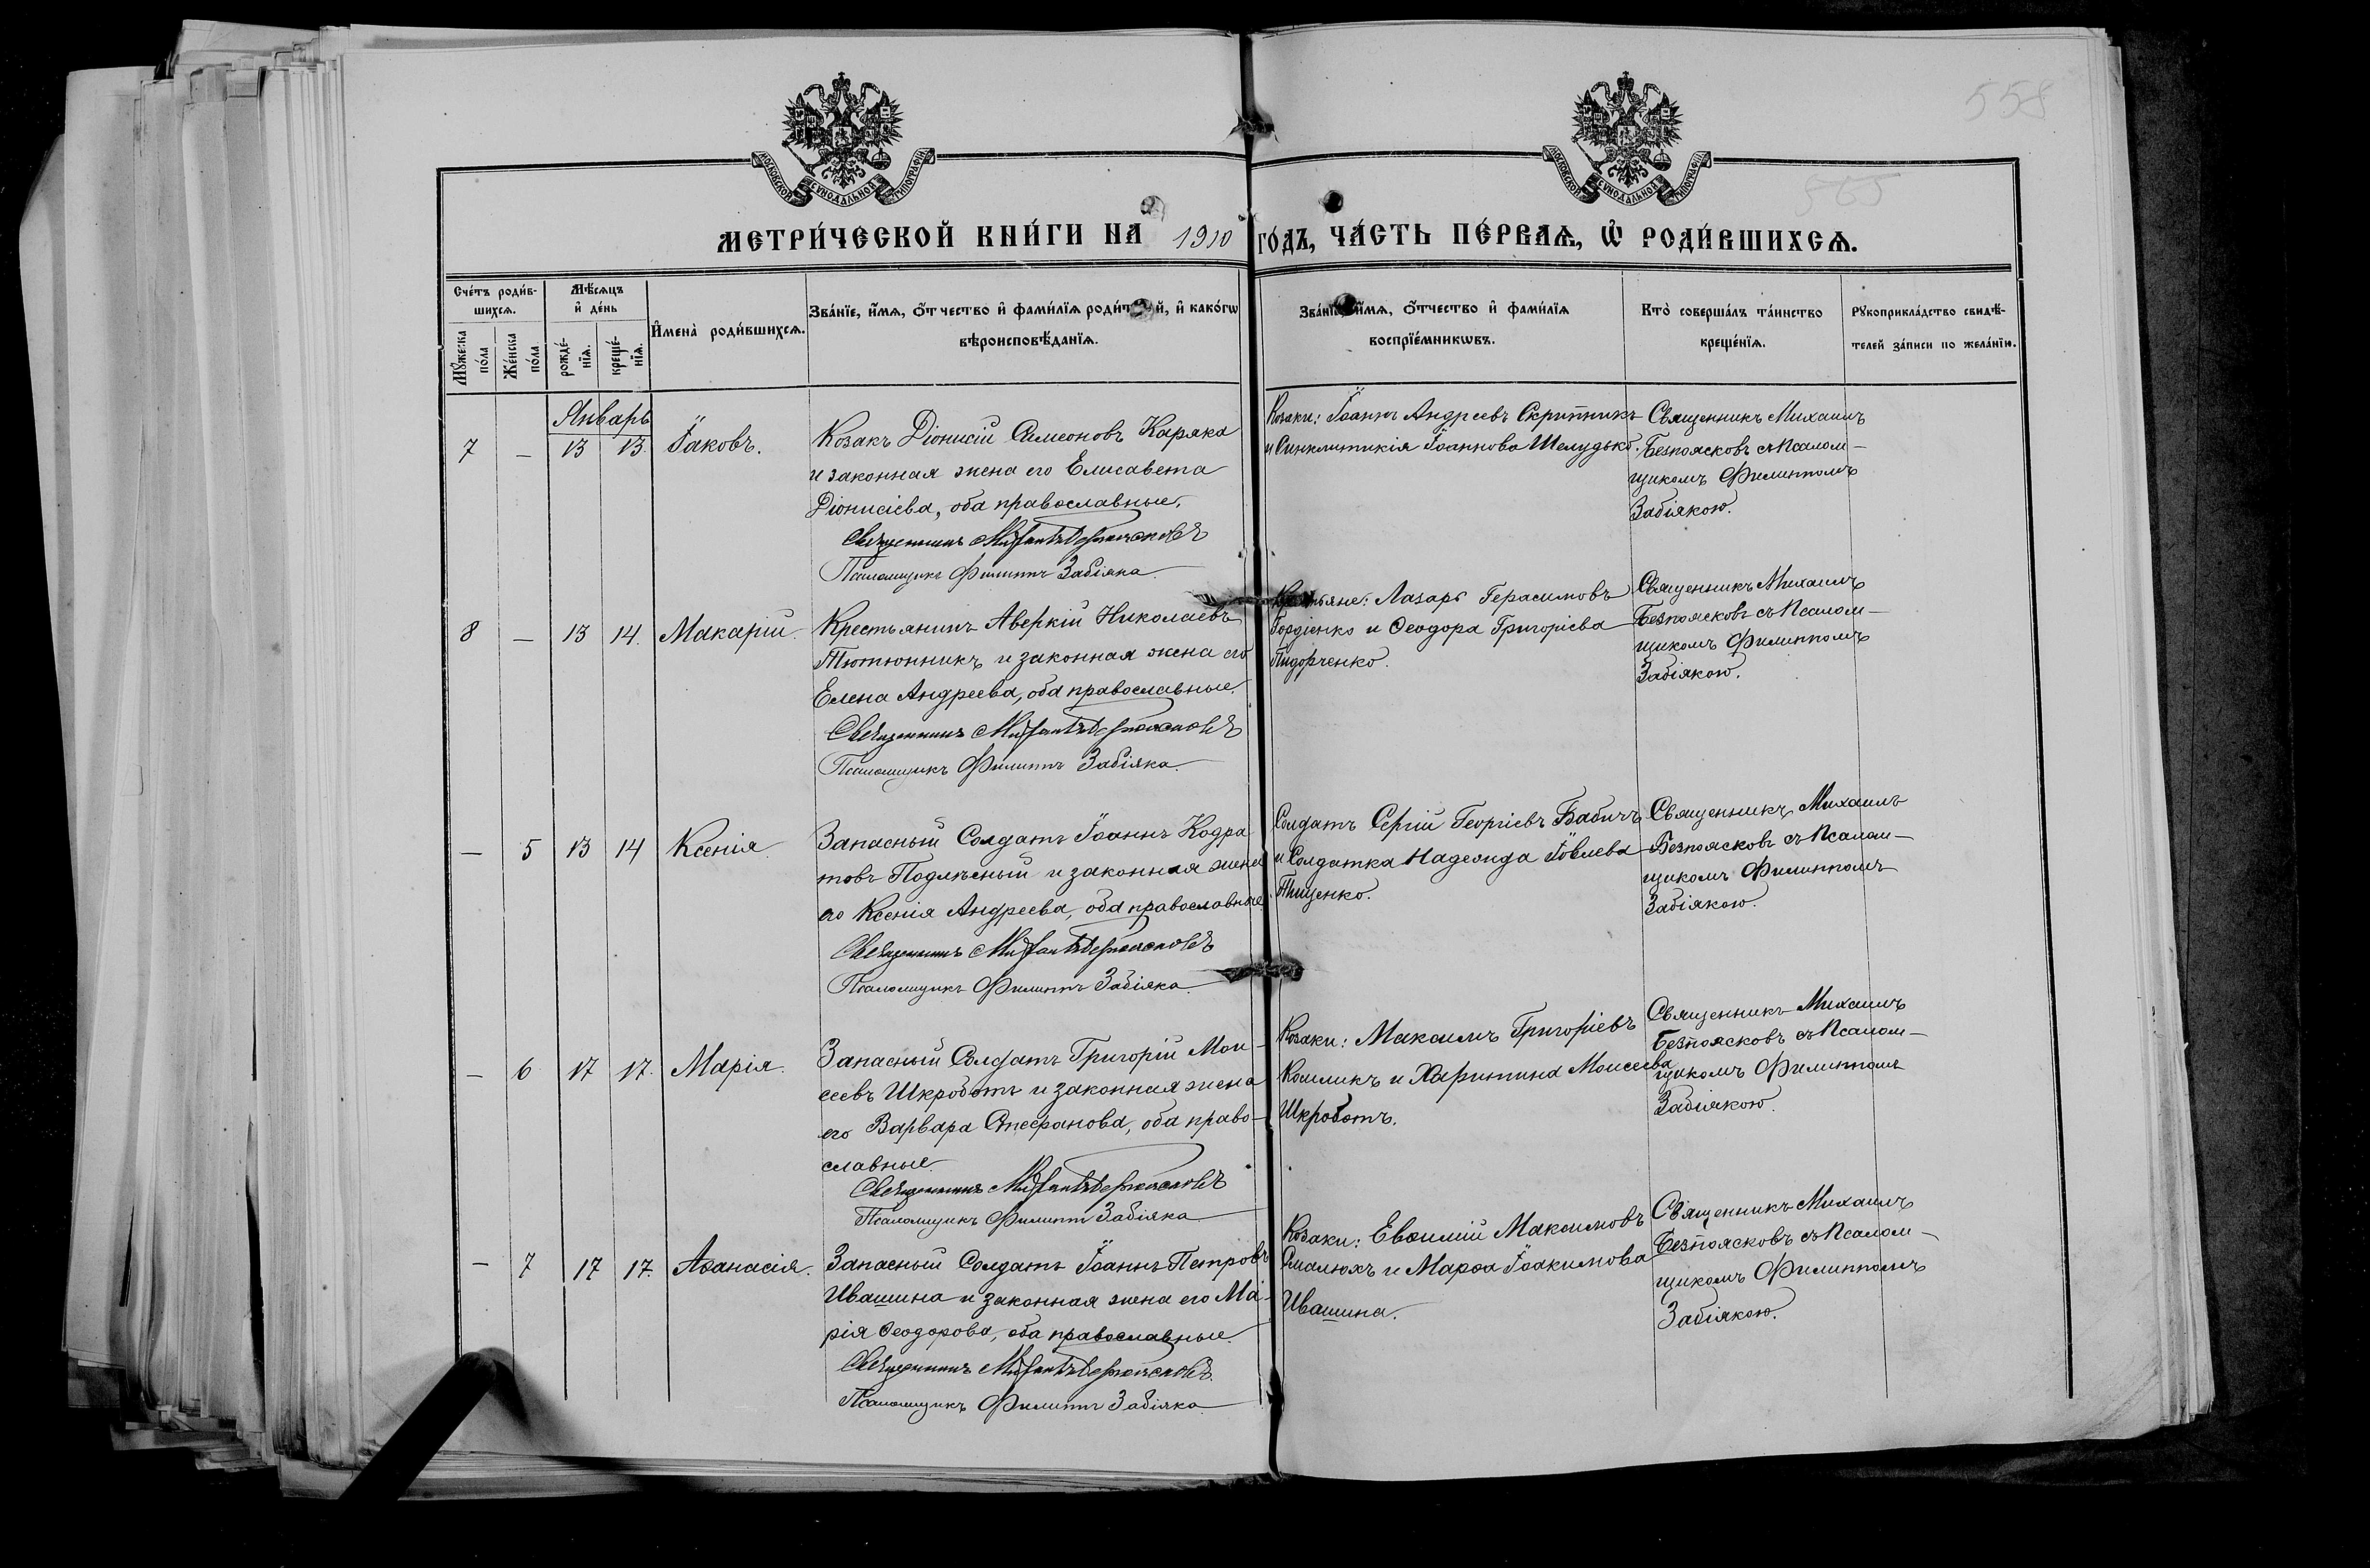 558
565
МОСКОВСКОЙ СУНОДАЛЬНОЙ ТИПОГРАФІИ
МОСКОВСКОЙ СУНОДАЛЬНОЙ ТИПОГРАФІИ
МЕТРИ́ЧЕСКОЙ КНИ́ГИ НА 1910 ГО́ДЪ, ЧА́СТЬ ПЕ́РВАѦ, Ѡ҆ РОДИ́ВШИХСѦ.
Сче́тъ роди́в-
шихсѧ.
Мꙋ́жеска по́ла
Же́нска по́ла
Мѣ́сѧцъ
и҆ де́нь
рожде́-
нїѧ.
креще́-
нїѧ.
И҆мена̀ роди́вшихсѧ.
Зва́нїе, и҆́мѧ, ѻ҆́тчество и҆ фами́лїѧ роди́телей, и҆ како́гѡ
вѣроисповѣ́данїѧ.
Зва́нїе, и҆́мѧ, ѻ҆́тчество и҆ фами́лїѧ
воспрїе́мникѡвъ.
Кто̀ соверша́лъ та́инство
креще́нїѧ.
Рꙋкоприкла́дство свидѣ́-
телей за́писи по жела́нїю.
Январь
7 — 13 13. Іаковъ.
Козакъ Діонисій Симеоновъ Каряка
и законная жена его Елисавета
Діонисіева, оба православные.
Священникъ Михаилъ Безпоясковъ
Псаломщикъ Филиппъ Забіяка
Козаки: Іоаннъ Андреевъ Скрипникъ
и Синклитикія Іоаннова Шелудько.
Священникъ Михаилъ
Безпоясковъ съ Псалом-
щикомъ Филиппомъ
Забіякою.
8 — 13 14. Макарій.
Крестьянинъ Аверкій Николаевъ
Тютюнникъ и законная жена его
Елена Андреева, оба православные.
Священникъ Михаилъ Безпоясковъ
Псаломщикъ Филиппъ Забіяка.
Крестьяне: Лазарь Герасимовъ
Гордіенко и Ѳеодора Григоріева
Пидорченко.
Священникъ Михаилъ
Безпоясковъ съ Псалом-
щикомъ Филиппомъ
Забіякою.
— 5 13 14 Ксенія.
Запасный Солдатъ Іоаннъ Кодра
товъ Подлѣсный и законная жена
его Ксенія Андреева, оба православные.
Священникъ Михаилъ Безпоясковъ
Псаломщикъ Филиппъ Забіяка.
Солдатъ Сергій Георгіевъ Бабичъ
и Солдатка Надежда Іовлева
Тищенко.
Священникъ Михаилъ
Безпоясковъ съ Псалом-
щикомъ Филиппомъ
Забіякою.
— 6 17 17. Марія.
Запасный Солдатъ Григорій Мои-
сеевъ Шкроботъ и законная жена
его Варвара Стефанова, оба право-
славные.
Священникъ Михаилъ Безпоясковъ
Псаломщикъ Филиппъ Забіяка
Козаки: Максимъ Григоріевъ
Колликъ и Харитина Моисеева
Шкроботъ.
Священникъ Михаилъ
Безпоясковъ съ Псалом-
щикомъ Филиппомъ
Забіякою.
— 7 17 17. Аѳанасія.
Запасный Солдатъ Іоаннъ Петровъ
Ивашина и законная жена его Ма-
рія Ѳеодорова, оба православные.
Священникъ Михаилъ Безпоясковъ.
Псаломщикъ Филиппъ Забіяка
Козаки: Евѳимій Максимовъ
Смалюхъ и Марѳа Іоакимова
Ивашина.
Священникъ Михаилъ
Безпоясковъ съ Псалом-
щикомъ Филиппомъ
Забіякою.